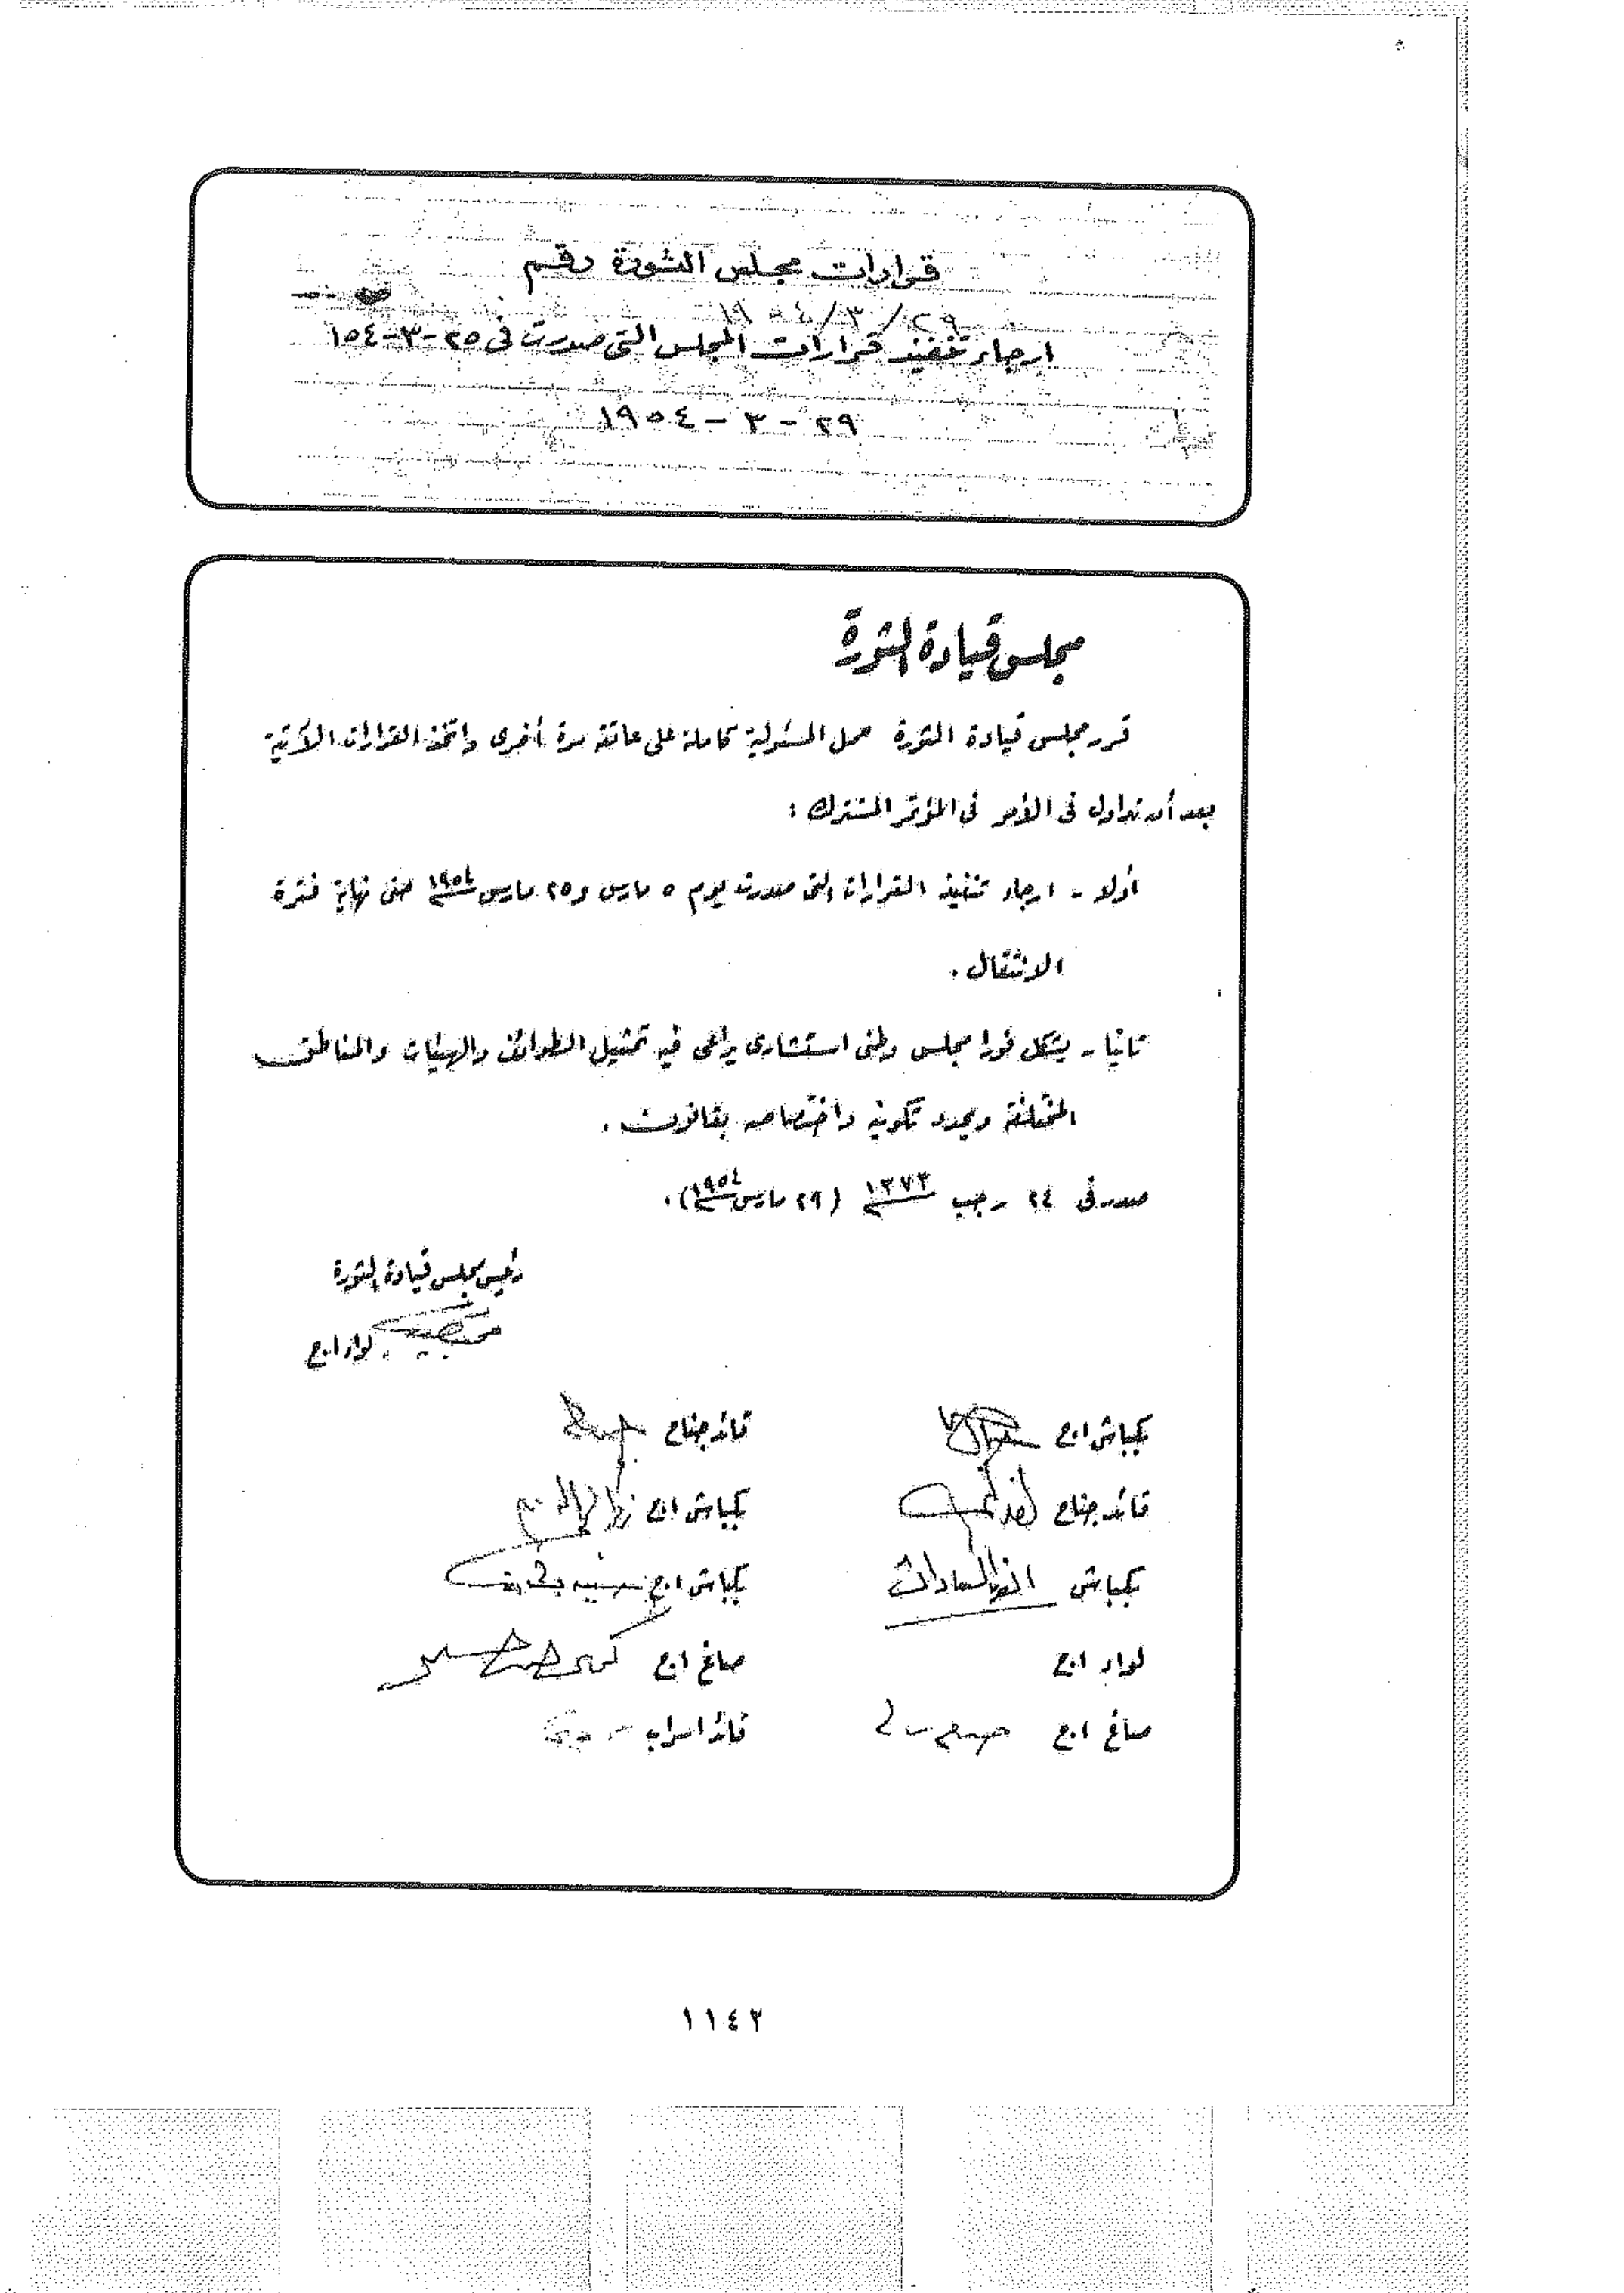 قرارات مجلس الثورة رقم
٢٩/٣/١٩٥٤
ارجاء تنفيذ قرارات المجلس التى صدرت فى ٢٥-٣-١٥٤
٢٩-٣-١٩٥٤
مجلس قيادة الثورة
قرر مجلس قيادة الثورة حمل المسئولية كاملة على عاتقه مرة أخرى واتخذ القرارات الآتية
بعد أن تداول فى الأمر فى المؤتمر المشترك :
أولا - ارجاء تنفيذ القرارات التى صدرت يوم ٥ مارس و٢٥ مارس ١٩٥٤ حتى نهاية فترة
الانتقال .
ثانيا - يشكل فورا مجلس وطنى استشارى يراعى فيه تمثيل الطوائف والهيئات والمناطق
المختلفة ويحدد تكوينه واختصاصه بقانون .
صدر فى ٢٤ رجب ١٣٧٣ (٢٩ مارس ١٩٥٤) .
رئيس مجلس قيادة الثورة
لواء ا.ح
بكباشى ا.ح
قائد جناح
قائد جناح
بكباشى ا.ح زكريا
بكباشى انور السادات
بكباشى ا.ح
لواء ا.ح
صاغ ا.ح كمال الدين حسين
صاغ ا.ح
قائد اسراب
١١٤٣